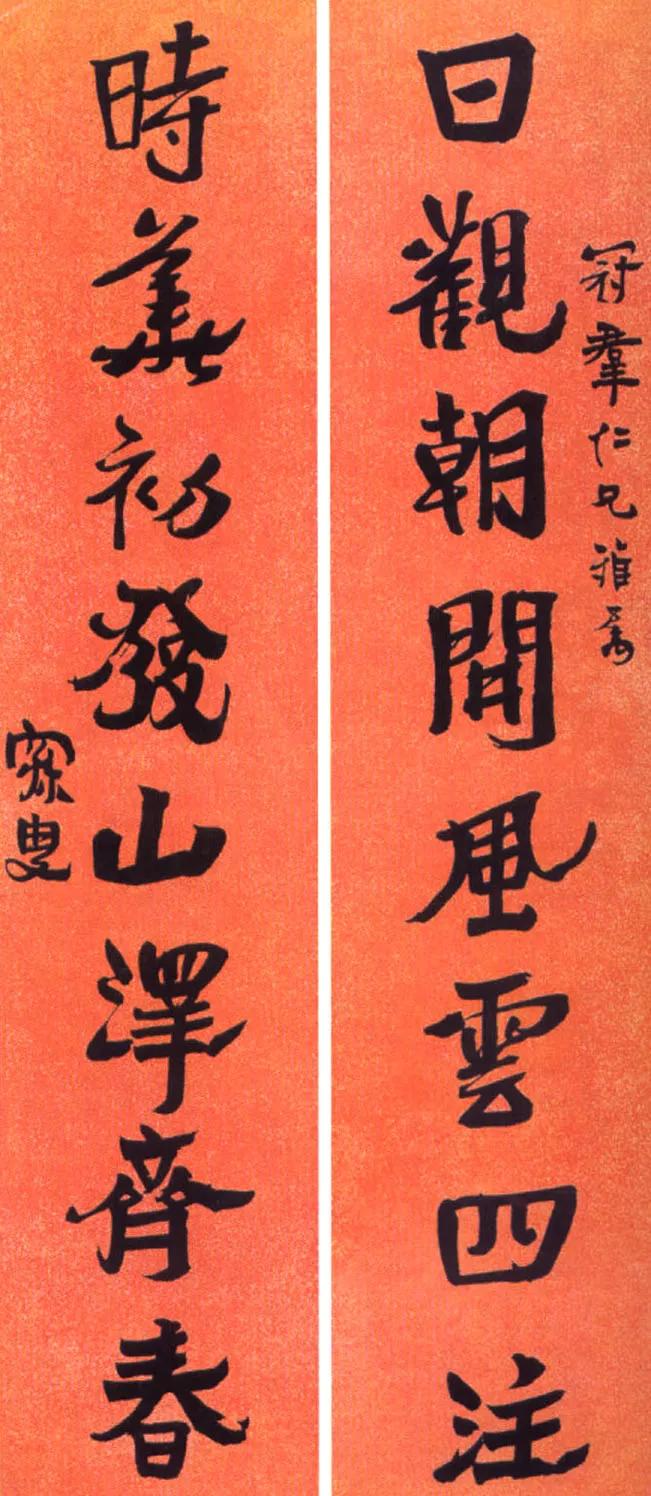 冠羣仁兄雅屬
日觀朝開風雲四注
時華初發山澤齊春
寐叟